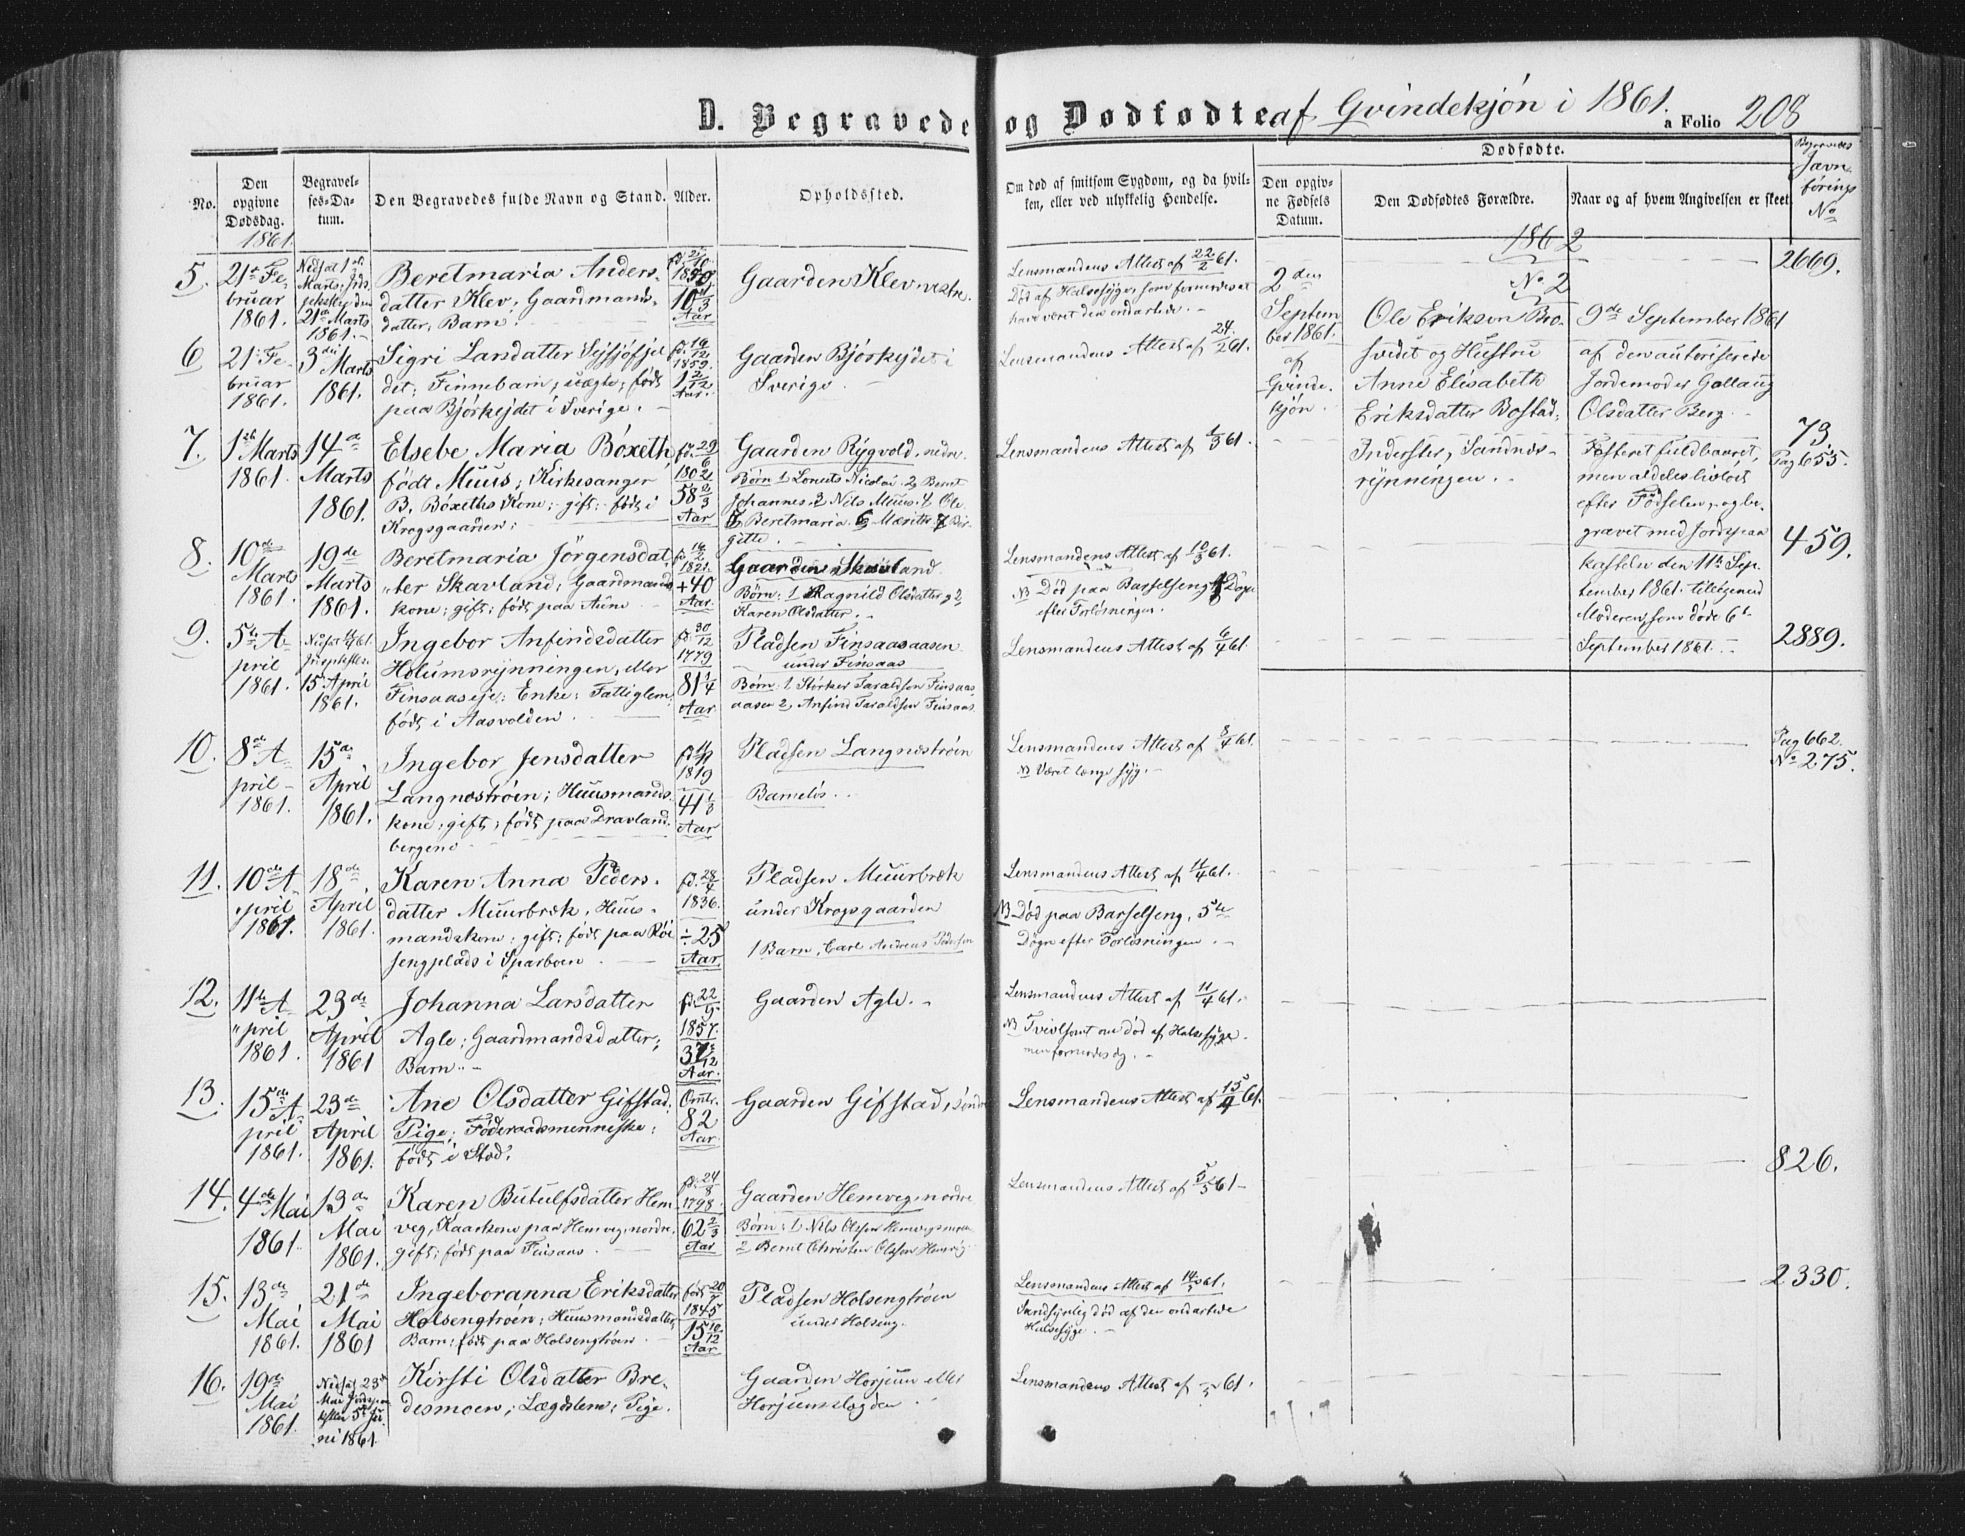 D. Begravede og Dødfødte af Qvindekjøn i 1861. a Folio 208
No.
Den opgivne Dødsdag.
Begravelses-Datum.
Den Begravedes fulde Navn og Stand.
Alder.
Opholdssted.
Om død af smitsom Sygdom, og da hvilken, eller ved ulykkelig Hendelse.
Dødfødte.
Den opgivne Fødsels Datum.
Den Dødfødtes Forældre.
Naar og af hvem Angivelsen er skeet
Jævnførings No
1861.
5.
21de Februar 1861.
Nedsat 1ste Marts; 21de Marts 1861.
Beretmaria Anders-
datter Klev; Gaardmands-
datter; Barn.
10 1/3 Aar
Gaarden Klev vestre.
Lensmandens Attest af 22/2 61.
Død af Halsesyge, som formodes at
have været den ondartede.
2669.
6
21. Februar 1861.
3die Marts 1861.
Sigri Larsdatter
det; Finnebarn; uægte; født
paa Björkejdet i Sverige.
fd. 16/12 1859.
1 2/12 Aar.
Gaarden Björkejdet i
Sverige.
Lensmandens Attest af 24/2 61.
7.
1ste Marts 1861.
14de Marts 1861.
Elsebe Maria Böxeth
født Muus; Kirkesanger
B. Böxeths Kone; gift; født i
Krogsgaarden;
fd. 29/6 1802
58 2/3 Aar
Gaarden Rygvold, nedre.
Børn 1 Lorents Nicolai 2 Bernt
Johannes 3 Nils Muus 4 Ole
5 Beretmaria 6 Merethe 7 Bir-
gitte.
Lensmandens Attest af 1/3 61.
73.
Pag 655.
8.
10de Marts 1861.
19de Marts 1861.
Beretmaria Jörgensdat-
ter Skavland; Gaardmands
kone; gift; født paa Aune
fd. 16/2 1821.
+40 Aar.
Gaarden Skavland
Børn: 1 Ragnild Olsdatter 2
Karen Olsdatter.
Lensmandens Attest af 10/3 61.
NB Død paa Barselseng
efter Forløsningen.
459.
9.
5te April 1861.
15 April 1861.
Ingebor Anfindsdatter
Holumsrynningen, eller
Finsaaseje; Enke; Fattiglem;
født i Aasvolden
fd. 30/12 1779
81 1/4 Aar
Pladsen Finsaasaasen
under Finsaas
Børn: 1 Störker Taraldsen Finsaas-
aasen 2, Anfind Taraldsen Finsaas
Lensmandens Attest af 6/4 61.
2889.
10.
8de April 1861.
15de April 1861.
Ingebor Jensdatter
Langnestrøen; Huusmands-
kone; gift; født paa Dravland-
bergene
1819
41 1/3 Aar
Pladsen Langnestrøen
Barnløs.
Lensmandens Attest af 8/4 61.
NB Været længe syg.
Pag 662.
No 275.
11.
10de April 1861.
18de April 1861.
Karen Anna Peders-
datter Muurbræk, Huus-
mandskone; gift; født paa Röi-
sengplads i Sparboen
fd. 28/4 1836.
÷25 Aar
Pladsen Muurbræk
under Krogsgaarden
1 Barn, Carl Andreas Pedersen
Lensmandens Attest af 11/4 61.
NB Død paa Barselseng, 5te
Døgn efter Forløsningen.
12.
11te April 1861.
23de April 1861
Johanna Larsdatter
Agle; Gaardmandsdatter;
Barn.
fd. 22/9 1857.
3 7/12 Aar.
Gaarden Agle.
Lensmandens Attest af 11/4 61.
NB Tvivlsomt om død af Halsesyge
men formodes dg.
13.
15de April 1861.
23de April 1861.
Ane Olsdatter Gifstad,
Pige; Föderaadsmenniske;
født i Stod.
Omtr. 82 Aar
Gaarden Gifstad, søndre
Lensmandens Attest af 15/4 61.
826.
14.
4de Mai 1861.
13de Mai 1861.
Karen Butulfsdatter Hem-
veg, Kaarkone paa Hemveg, nordre.
gift; født paa Finsaas
fd. 24/8 1798.
62 2/3 Aar
Gaarden Hemveg, nordre
Børn: 1 Nils Olsen Hemveg
2 Bernt Christian Olsen Hemveg
Lensmandens Attest af 5/5 61
15.
13de Mai 1861.
21de Mai 1861
Ingeboranna Eriksdatter
Holsengtrøen; Huusmandsdatter,
Barn; født paa Holsengtrøen
født 20/7 1845
15 10/12 Aar
Pladsen Holsengtrøen
under Holseng.
Lensmandens Attest af 14/5 61.
Sandsynlig død af den ondartede
Halsesyge.
2330.
16.
19de Mai 1861.
Nedsat 23de Mai Jordspaakasten 5te Juni 1861.
Kirsti Olsdatter Bre-
desmoen; Lægdslem; Pige.
Gaarden Horjum eller
Horjumslægden
Lensmandens Attest af 61.
1862
No 2
2den September 1861.
af Qvindekjøn.
Ole Eriksen Bro-
svedet og Hustru
Anne Elisabeth
Eriksdatter Bostad;
Inderster, Sandnes-
rynningen.
9de September 1861
af den autoriserede
Jordemoder Gollaug
Olsdatter Berg.
Fosteret fuldbaaret,
men aldeles livløst
efter Fødselen, og be-
gravet med Jordspaa-
kastelse den 11te Sep-
tember 1861 tilligemed
Moderen, som døde 6te
September 1861.